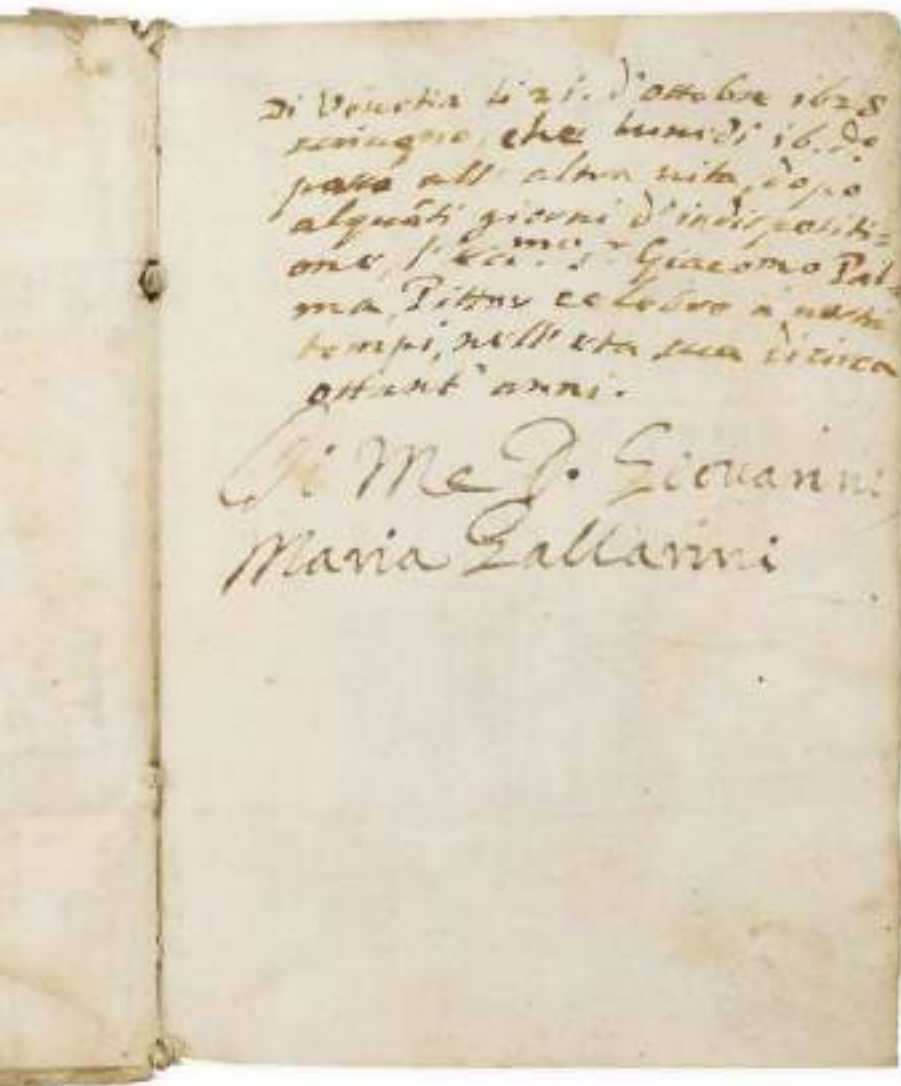 Di Venetia li 21. d'ottobre 1628
che lunedi 16. do.
passò all' altra uita, dopo
alquãti giorni d'indispositi=
one, l'ecc.mo s.r Giacomo Pal=
ma, Pittor celebre a' nostri
tempi, nell' eta sua di circa
ottant' anni.
Di Me P. Giouanni
Maria Gallarini